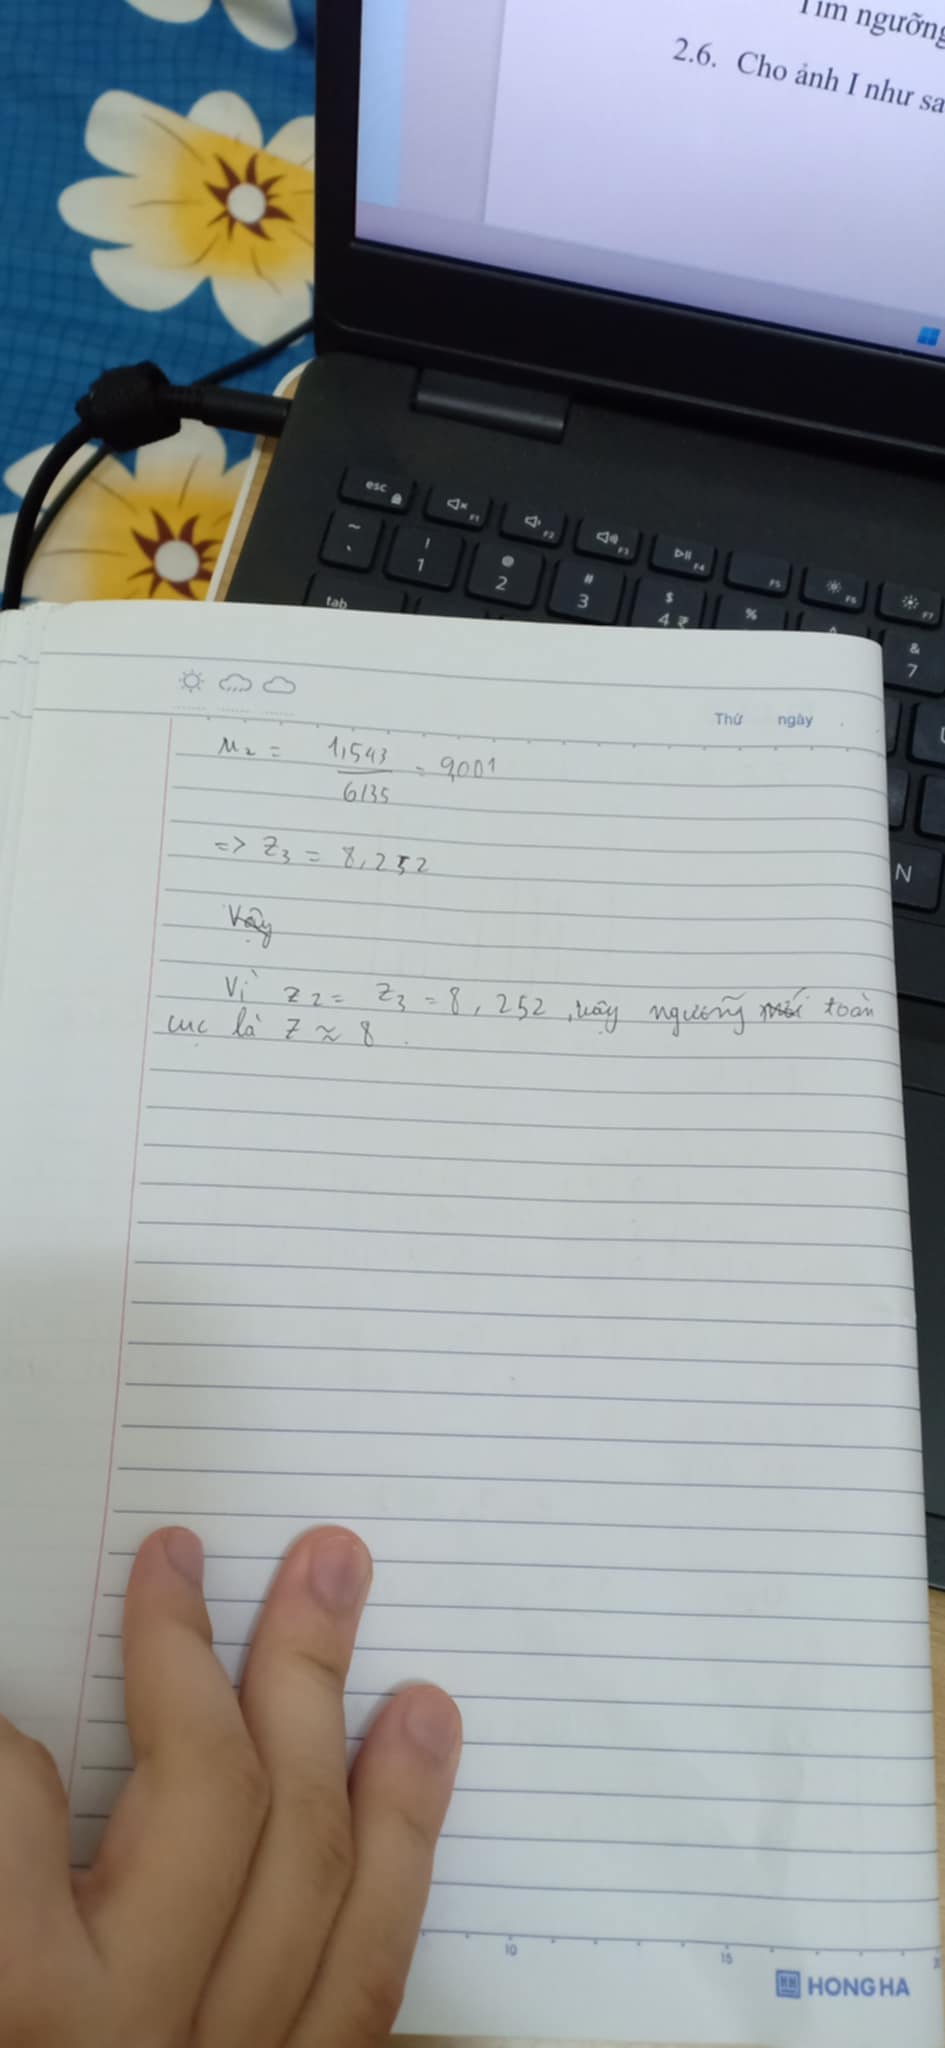 Tìm ngưỡng
2.6. Cho ảnh I như sa
esc
F1
F2
F3
F4
F5
F6
F7
~
`
!
1
@
2
#
3
$
4 ₹
%
&
7
tab
N
Thứ ngày
μ₂ = 1,543 / 6135 = 9,001
=> Z₃ = 8,252
Vậy
Vì Z₂ = Z₃ = 8,252, vậy ngưỡng toàn
cục là Z ≈ 8.
10
15
HONG HA